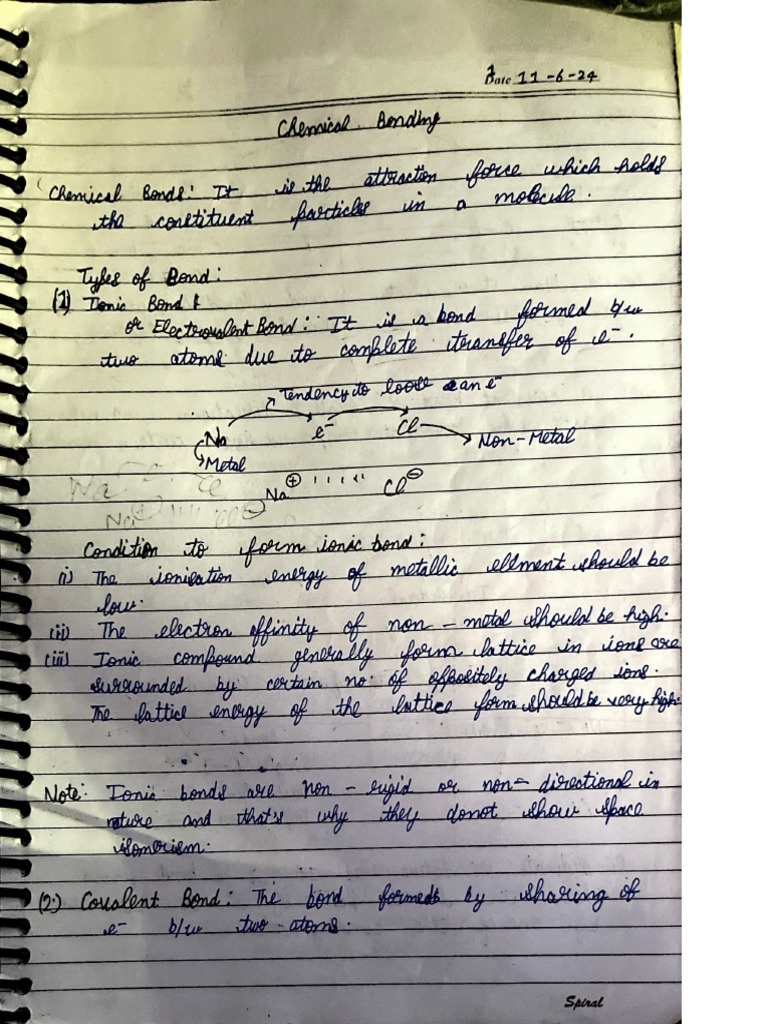 Date 11-6-24
Chemical Bonding
Chemical Bonds: It is the attraction force which holds
the constituent particles in a molecule.
Types of Bond:
(1) Ionic Bond
or Electrovalent Bond: It is a bond formed b/w
two atoms due to complete transfer of e⁻.
Tendency to loose an e⁻
Na e⁻ Cl Non-Metal
Metal
Na⊕ ..... Cl⊖
Condition to form ionic bond:
(i) The ionisation energy of metallic ellment should be
low.
(ii) The electron affinity of non-metal should be high.
(iii) Ionic compound generally form lattice in ions are
surrounded by certain no. of oppositely charged ions.
The lattice energy of the lattice form should be very high.
Note: Ionic bonds are non-rigid or non-directional in
nture and that's why they donot show space
isomerism.
(2.) Covalent Bond: The bond formed by sharing of
e⁻ b/w two-atoms.
Spiral